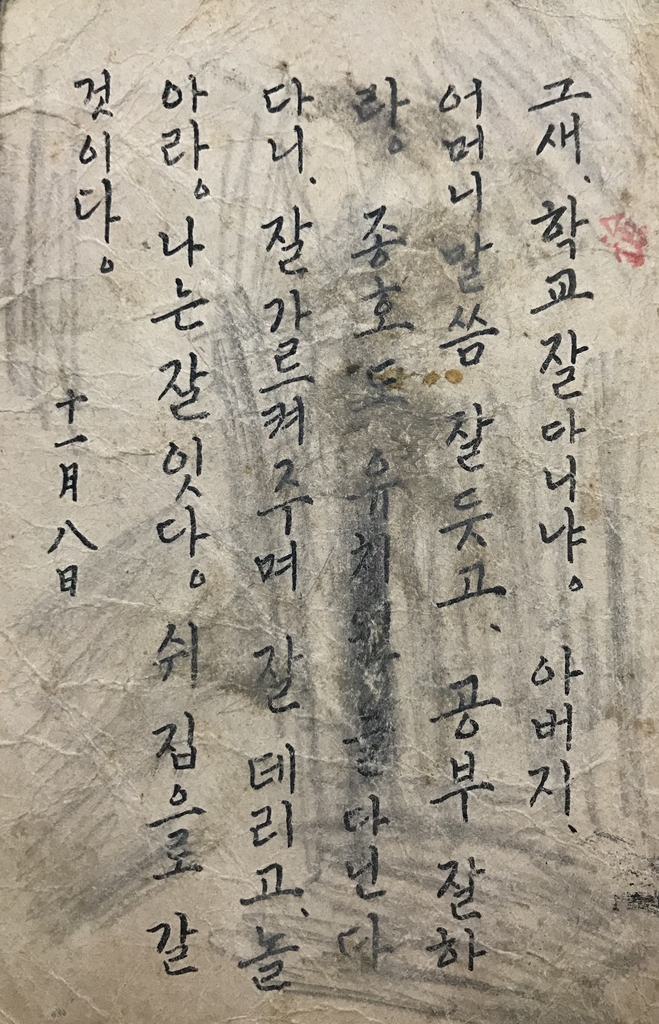 그새、학교 잘 다니냐。 아버지、
어머니 말씀 잘 듯고、 공부 잘 하
라。 종호도 유치원을 다닌다
다니、잘 가르켜 주며 잘 데리고、놀
아라。나는 잘 잇다。 쉬 집으로 갈
것이다。
十一月八日